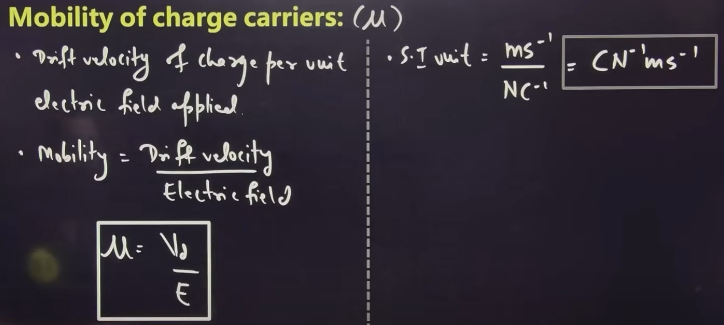 Mobility of charge carriers: (μ)
• Drift velocity of charge per unit
electric field applied.
• Mobility = Drift velocity
Electric field
μ = Vd
E
• S.I unit = ms⁻¹
NC⁻¹
= CN⁻¹ms⁻¹